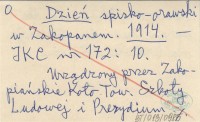 Dzień spisko-orawski
w Zakopanem. 1914. —
IKC nr. 172: 10.
Urządzony przez Zako-
piańskie Koło Tow. Szkoły
Ludowej i Prezydium